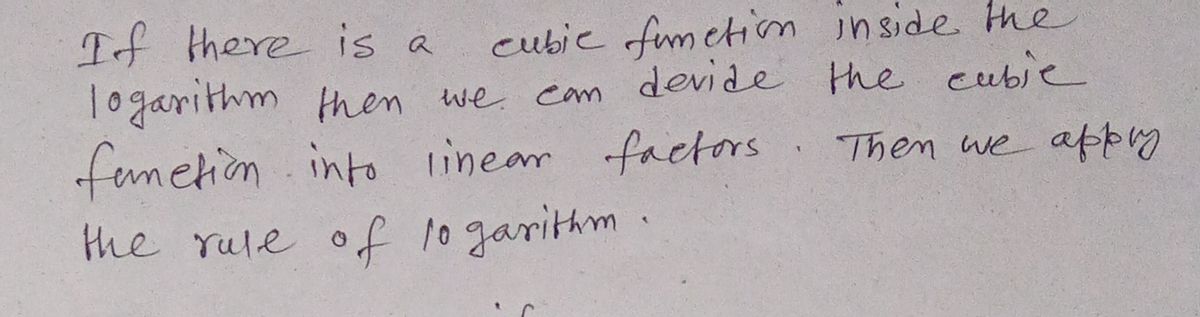 If there is a cubic function inside the
logarithm then we can devide the cubic
function into linear factors. Then we apply
the rule of logarithm.